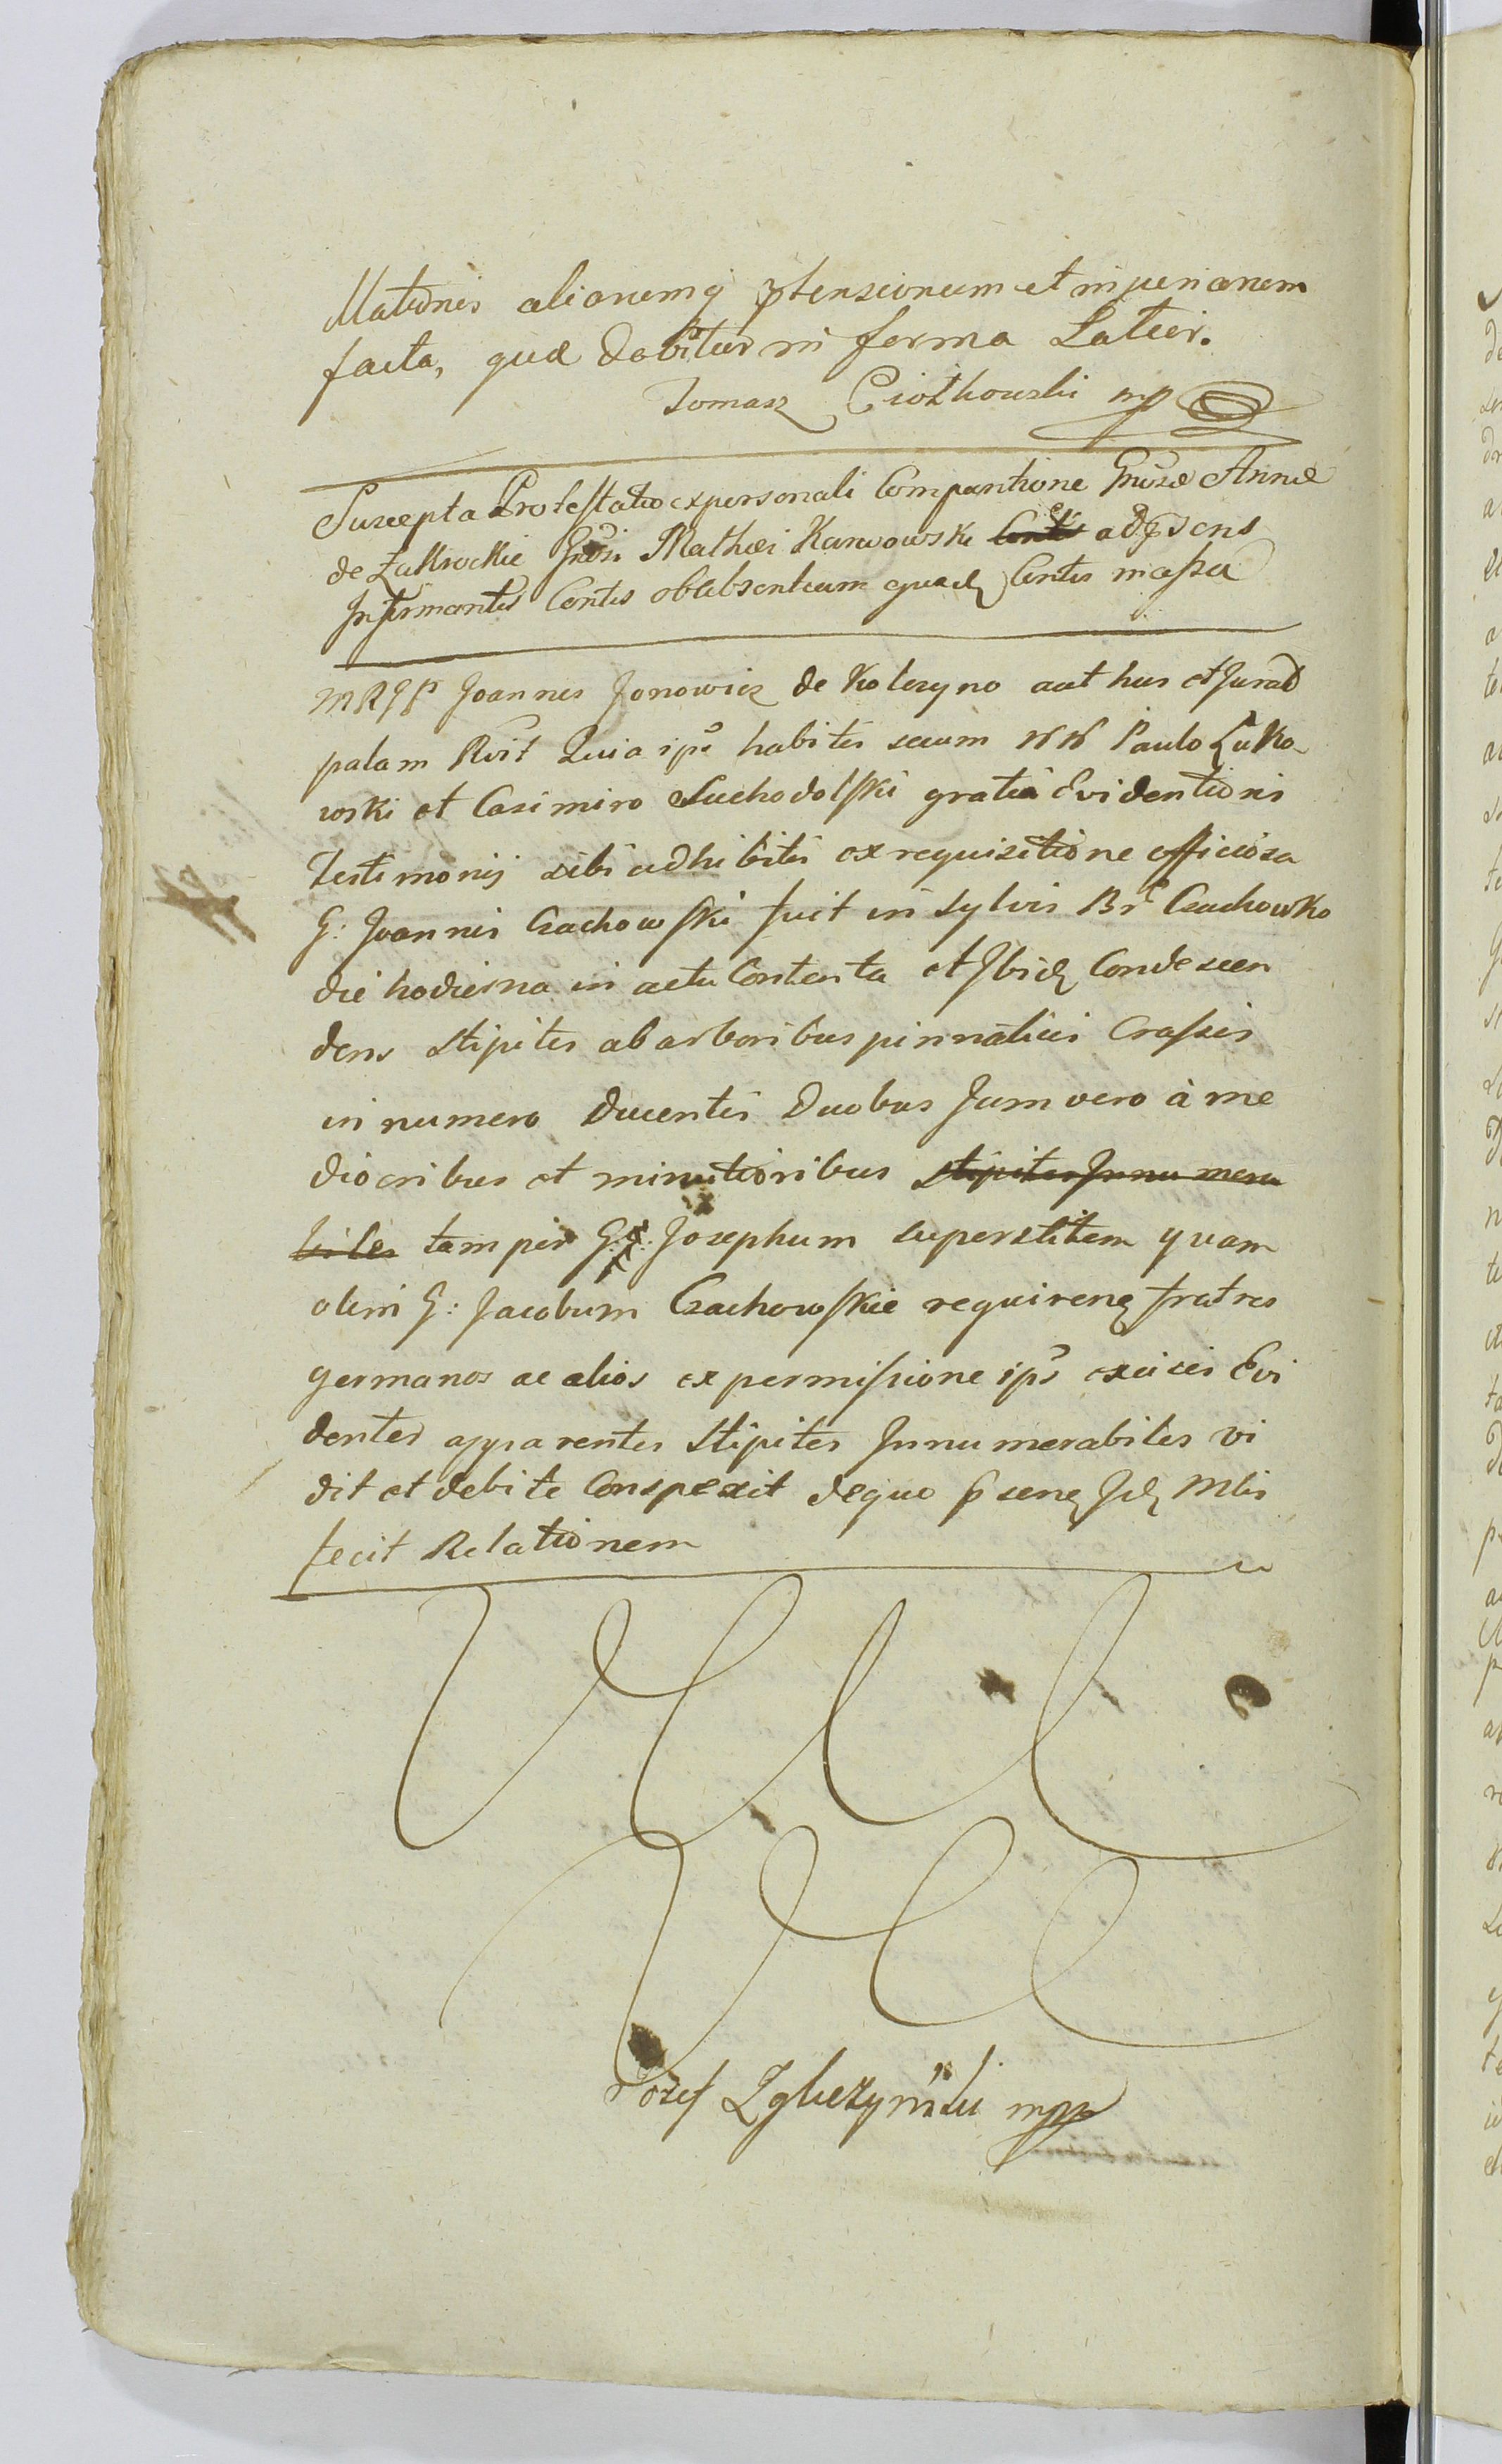 Matiōnis aliorumq ptensionum et injuriarum
facta, quæ dabitur in forma Latiori.
Tomasz Piotkowski mp
Suscepta Protestatio ex personali Comparitione Gnosæ Annæ
de Zakrockie Gnosi Mathæi Karwowski adpsens
Infirmantis Contis ob absentiam ejusd Contis
MRGP Joannes Jonowicz de Kolczyno auth hus et Jurad
palam Rvit Quia ips habitis secum NN Paulo Łuko-
wski et Casimiro Suchodolski gratia Evidentioris
Testimonij sibi adhibitis ex requisitione officiosa
G: Joannis Czachowski fuit in sylvis Br Czachowko
die hodierna in actu Contenta et Ibid Condescen
dens stipites ab arboribus pinnaticis Crassis
in numero Ducentis Duobus Jam vero à me
diocribus et minutioribus stipites Innumera
biles tam per G: Josephum superstitem quam
olim G: Jacobum Czachowskie requirenq fratres
germanos ac alios ex permissione ips excicis Evi
denter apparentes Stipites Innumerabiles vi
dit et debite Conspexit dequo psenq Jd Mlis
fecit Relationem
Jozef Zgliczynski mpp